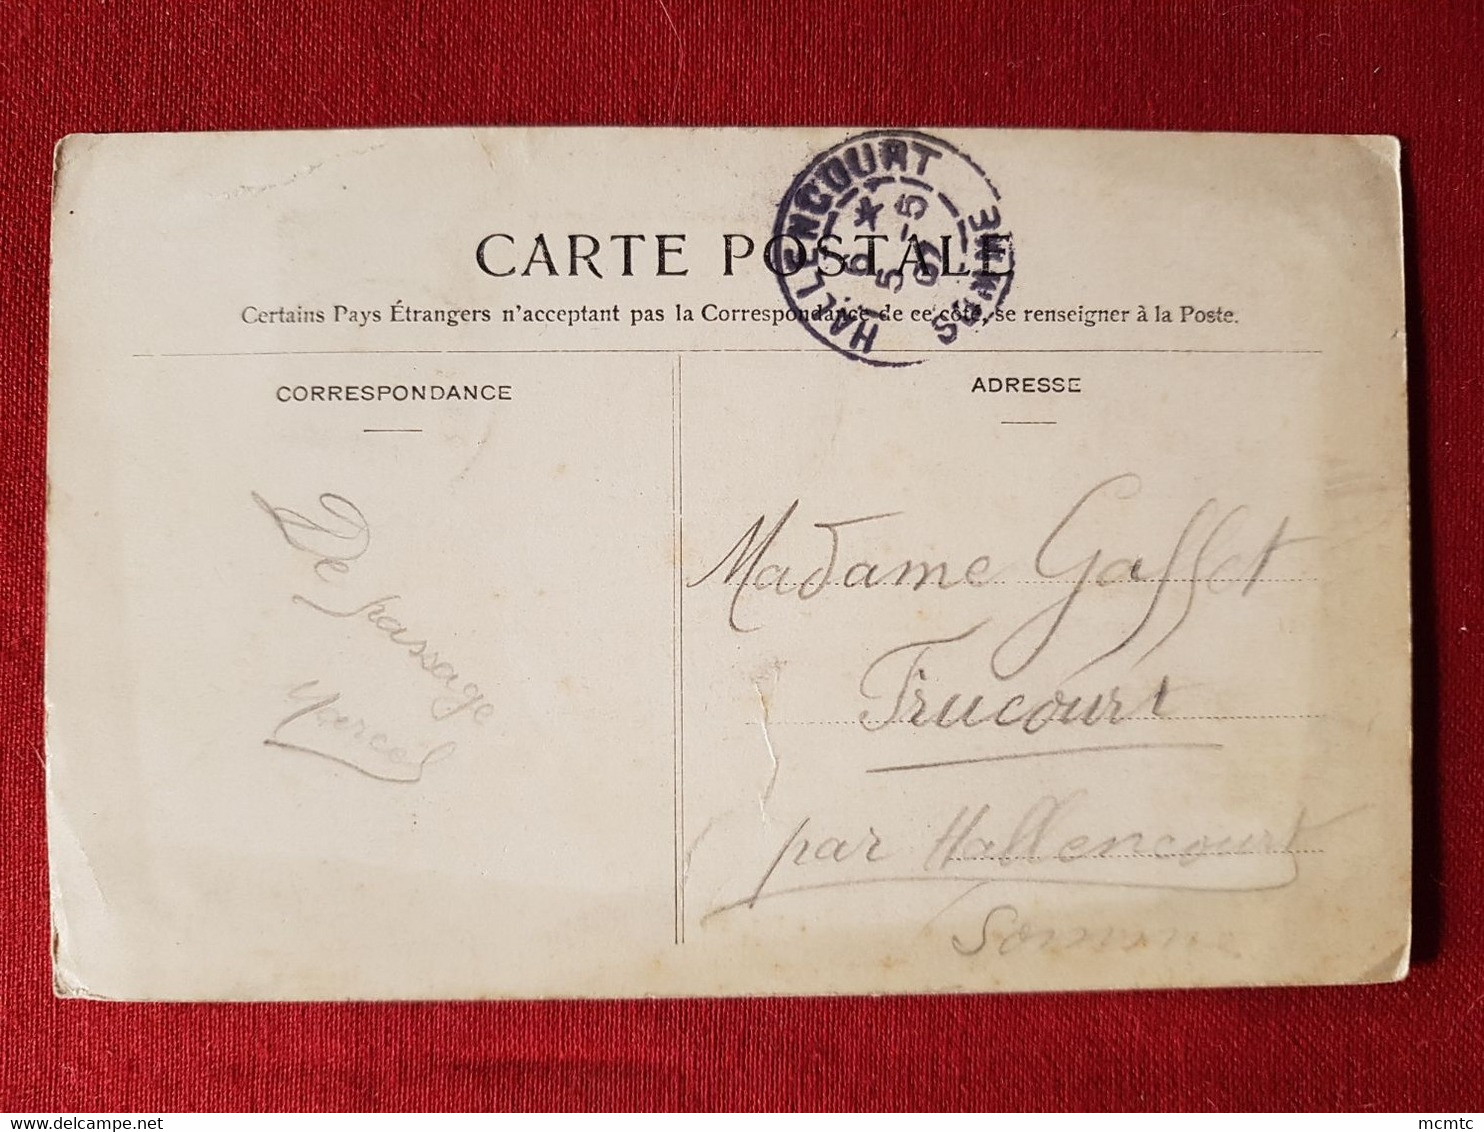 HALLENCOURT
SOMME
6 *
5 -5
07
CARTE POSTALE
Certains Pays Étrangers n'acceptant pas la Correspondance de ce côté, se renseigner à la Poste.
CORRESPONDANCE
De passage
Marcel
ADRESSE
Madame Gafflet
Frucourt
par Hallencourt
Somme
mcmtc